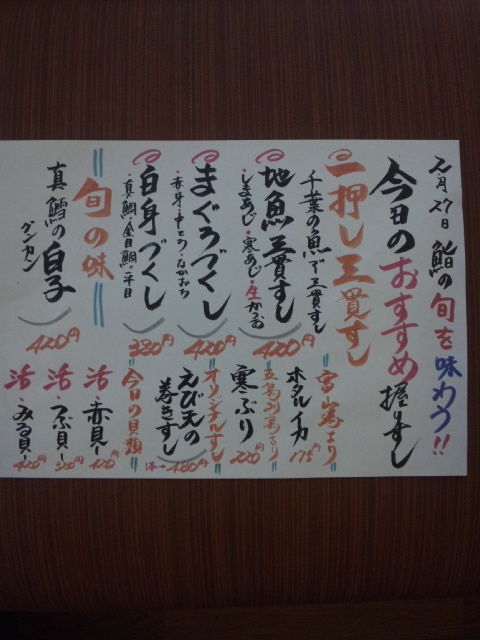 二月27日 鮨の旬を味わう!!
今日のおすすめ握りすし
一押し三貫すし
千葉の魚で三貫すし
地魚三貫すし
・しまあじ・寒あじ・生かつお
420円
まぐろづくし
・赤身・中とろ・なかおち
420円
白身づくし
・真鯛・金目鯛・平目
380円
旬の味
真鱈の白子
グンカン
420円
富山湾より
ホタルイカ
175円
五島列島より
寒ぶり
220円
オリジナルすし
えび天の
巻きすし
1本→480円
今日の貝類
活・赤貝ー420円
活・つぶ貝ー320円
活・みる貝ー420円